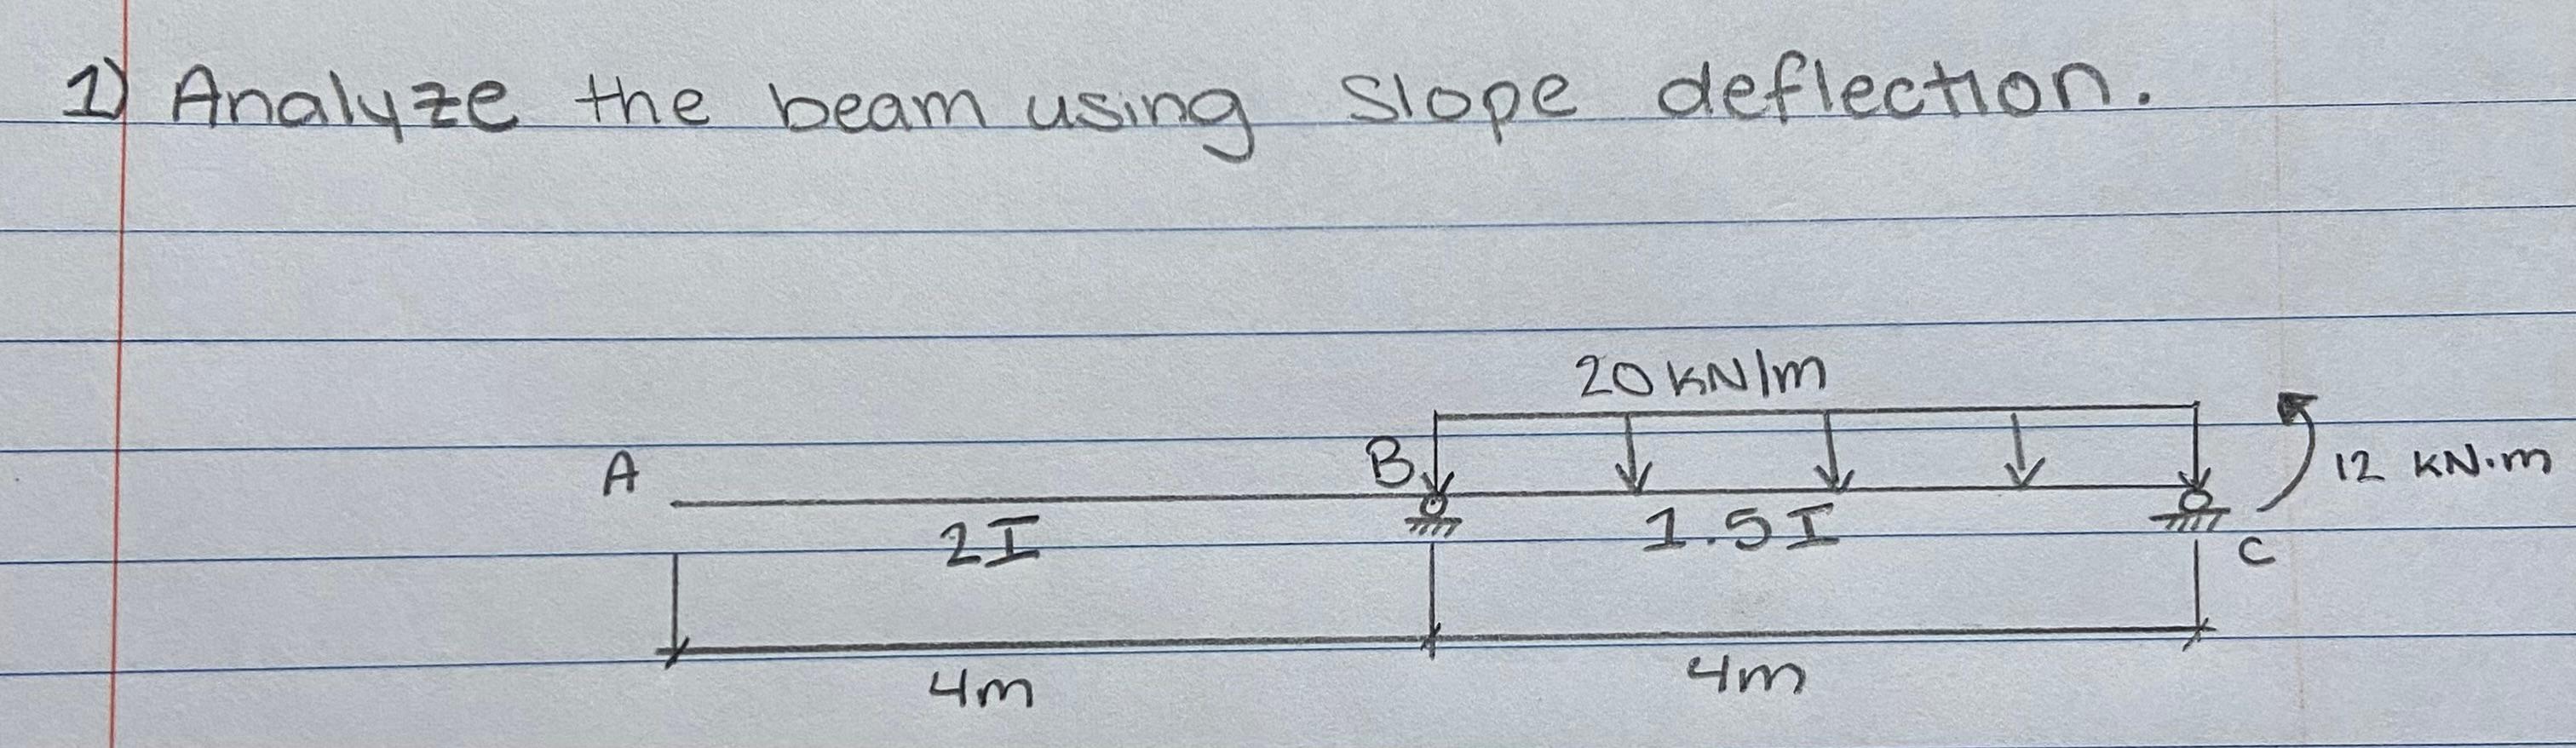 1) Analyze the beam using slope deflection.
20 kN/m
A
B
12 kN·m
2I
1.5I
C
4m
4m